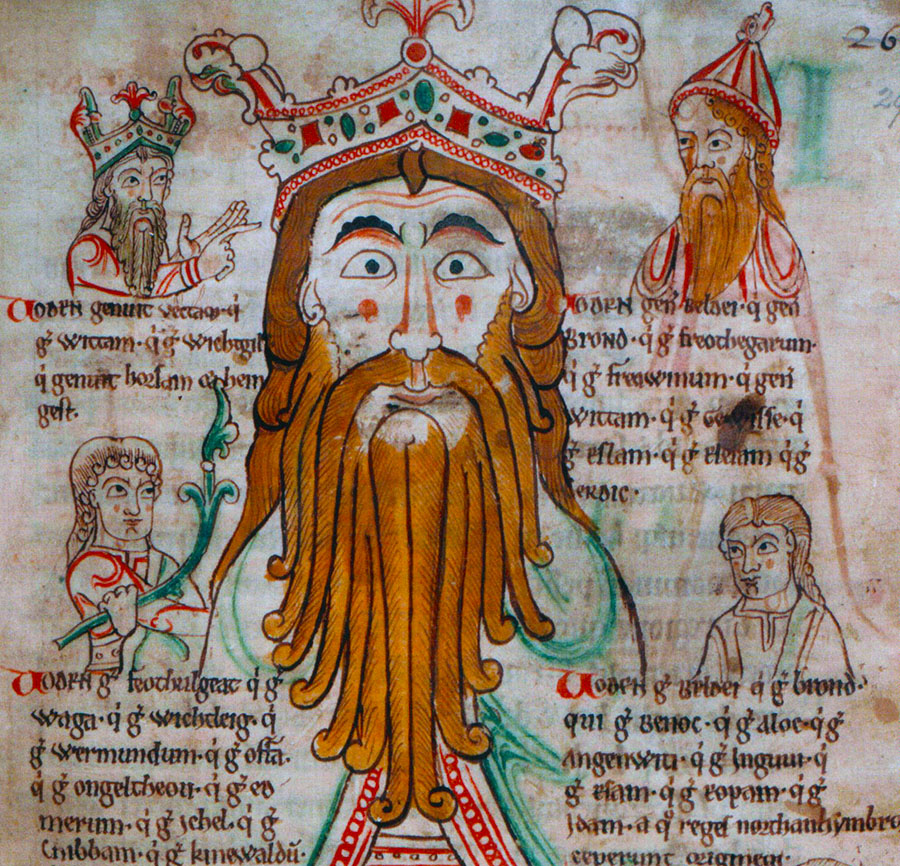 26
Uoden genuit vectam· q̇
g̊ wittam· q̇ g̊ wichtgil
q̇ genuit horsam et hen
gest·
Uoden gen̄ Beldei· q̇ gen̄
Brond· q̇ g̊ freothegarum·
q̇ g̊ freawinum· q̇ gen̄
wittam· q̇ g̊ Gewisse· q̇
g̊ eslam· q̇ g̊ q̇ g̊
cerdic·
Uoden g̊ feothulgeat q̇ g̊
waga· q̇ g̊ wichtleig· q̇
g̊ wermundum· q̇ g̊ offa·
q̇ g̊ ongeltheou· q̇ g̊ eo
merum· q̇ g̊ Ichel· q̇ g̊
Cnibbam· q̇ g̊ kinewaldū·
Uoden g̊ Beldei q̇ g̊ brond·
qui g̊ Benoc· q̇ g̊ Aloc· q̇ g̊
Angenwiti· q̇ g̊ Inguui· q̇
g̊ esam· q̇ g̊ eopam· q̇ g̊
Idam· a q̊ reges northanhymbro
ceperunt originem·